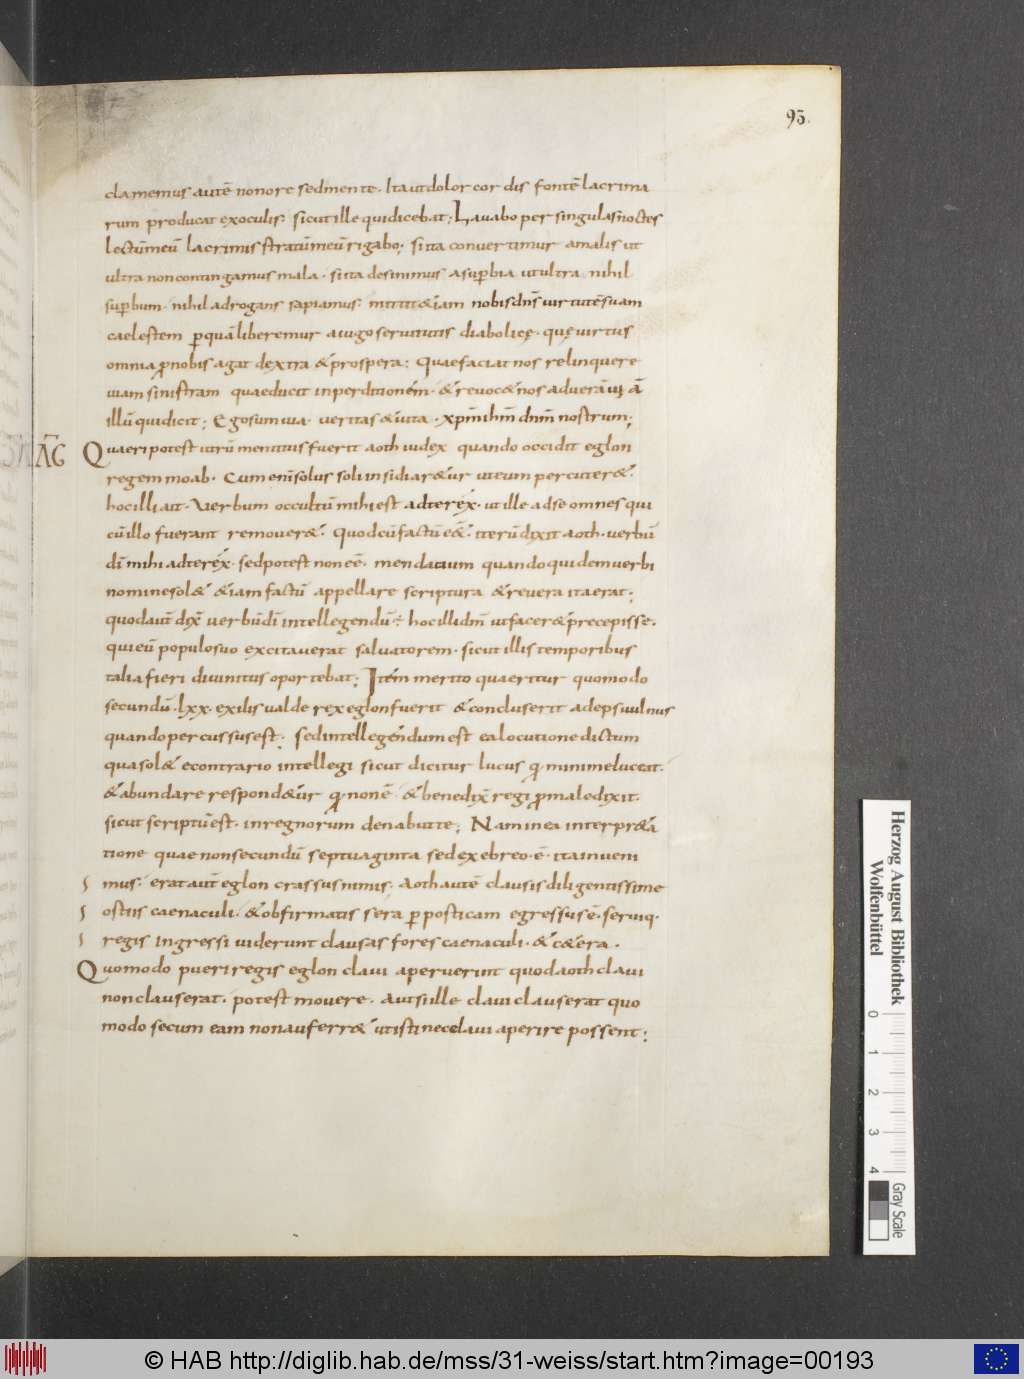 93.
clamemus autē non ore sed mente. Ita ut dolor cordis fontē lacrima
rum producat ex oculis. sicut ille qui dicebat; Lavabo per singulas noctes
lectū meū lacrimis stratū meū rigabo; si ita convertimur a malis ut
ultra non contingamus mala. si ita desinimus a suꝑbia ut ultra nihil
suꝑbum. nihil adrogans sapiamus. mittit &iam nobis dn̄s virtutē suam
caelestem ꝑ quā liberemur a iugo servitutis diabolicę. quę virtus
omnia ꝓ nobis agat dextra & prospera; Quae faciat nos relinquere
viam sinistram quae ducit in perditionem. & revoc& nos ad verā viā
illū qui dicit; Ego sum via. veritas & vita. xp̄m ih̄m dn̄m nostrum;
AG Quaeri potest utrū mentitus fuerit aoth iudex quando occidit eglon
regem moab. Cum enī solus soli insidiar&ur ut eum percuter&.
hoc illi ait. Verbum occultū mihi est ad te rex. ut ille ad se omnes qui
cū illo fuerant remover&. Quod cū factū eēt. iterū dixit aoth. verbū
dī mihi ad te rex. sed potest non eē mendatium quando quidem verbi
nomine sol& &iam factū appellare scriptura & revera ita erat;
quod aut̄ dix̄ verbū dī intellegendū ÷ hoc illi dm̄ ut facer& precepisse.
qui eū populo suo excitaverat salvatorem. sicut illis temporibus
talia fieri divinitus oportebat; Item merito quaeritur quomodo
secundū .lxx. exilis valde rex eglon fuerit & concluserit adeps vulnus
quando percussus est. sed intellegendum est ea locutione dictum
qua sol& e contrario intellegi sicut dicitur lucus q minime luceat.
& abundare respond&ur q non ē. & benedix̄ regi ꝓ maledixit.
sicut scriptū est. in regnorum de nabutte; Nam in ea interpr&a
tione quae non secundū septuaginta sed ex ebreo. ē. ita inveni
mus. erat aut̄ eglon crassus nimis. Aoth autē clausis diligentissime
ostiis caenaculi. & obfirmatis sera ꝑ posticam egressus ē. serviq.
regis ingressi viderunt clausas fores caenaculi. & c&era.
Quomodo pueri regis eglon clavi aperuerint quod aoth clavi
non clauserat. potest movere. Aut si ille clavi clauserat quo
modo secum eam non auferr& ut isti nec clavi aperire possent;
Herzog August Bibliothek
Wolfenbüttel
0 1 2 3 4
Gray Scale
© HAB http://diglib.hab.de/mss/31-weiss/start.htm?image=00193